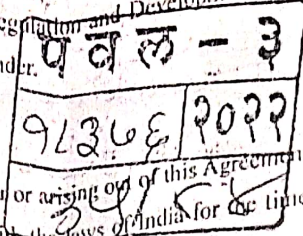 egulation and Develop
प व ल - ३
nder.
१८३७६ २०२२
or arising out of this Agreemen
laws of India for the time